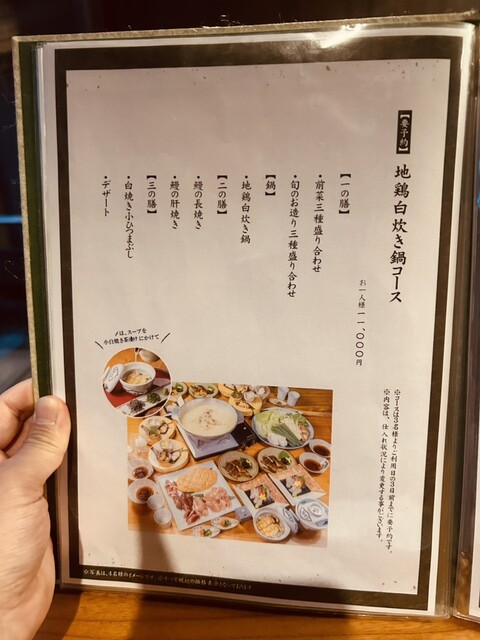 【要予約】
地鶏白炊き鍋コース
お一人様 一一、〇〇〇円
※コースは3名様よりご利用日の3日前までに要予約です。
※内容は、仕入れ状況により変更する事がございます。
【一の膳】
・前菜三種盛り合わせ
・旬のお造り三種盛り合わせ
【鍋】
・地鶏白炊き鍋
【二の膳】
・鰻の長焼き
・鰻の肝焼き
【三の膳】
・白焼き小ひつまぶし
・デザート
〆は、スープを
小白焼き茶漬けにかけて
※写真は、4名様のイメージです。※すべて税込の価格表示となっております